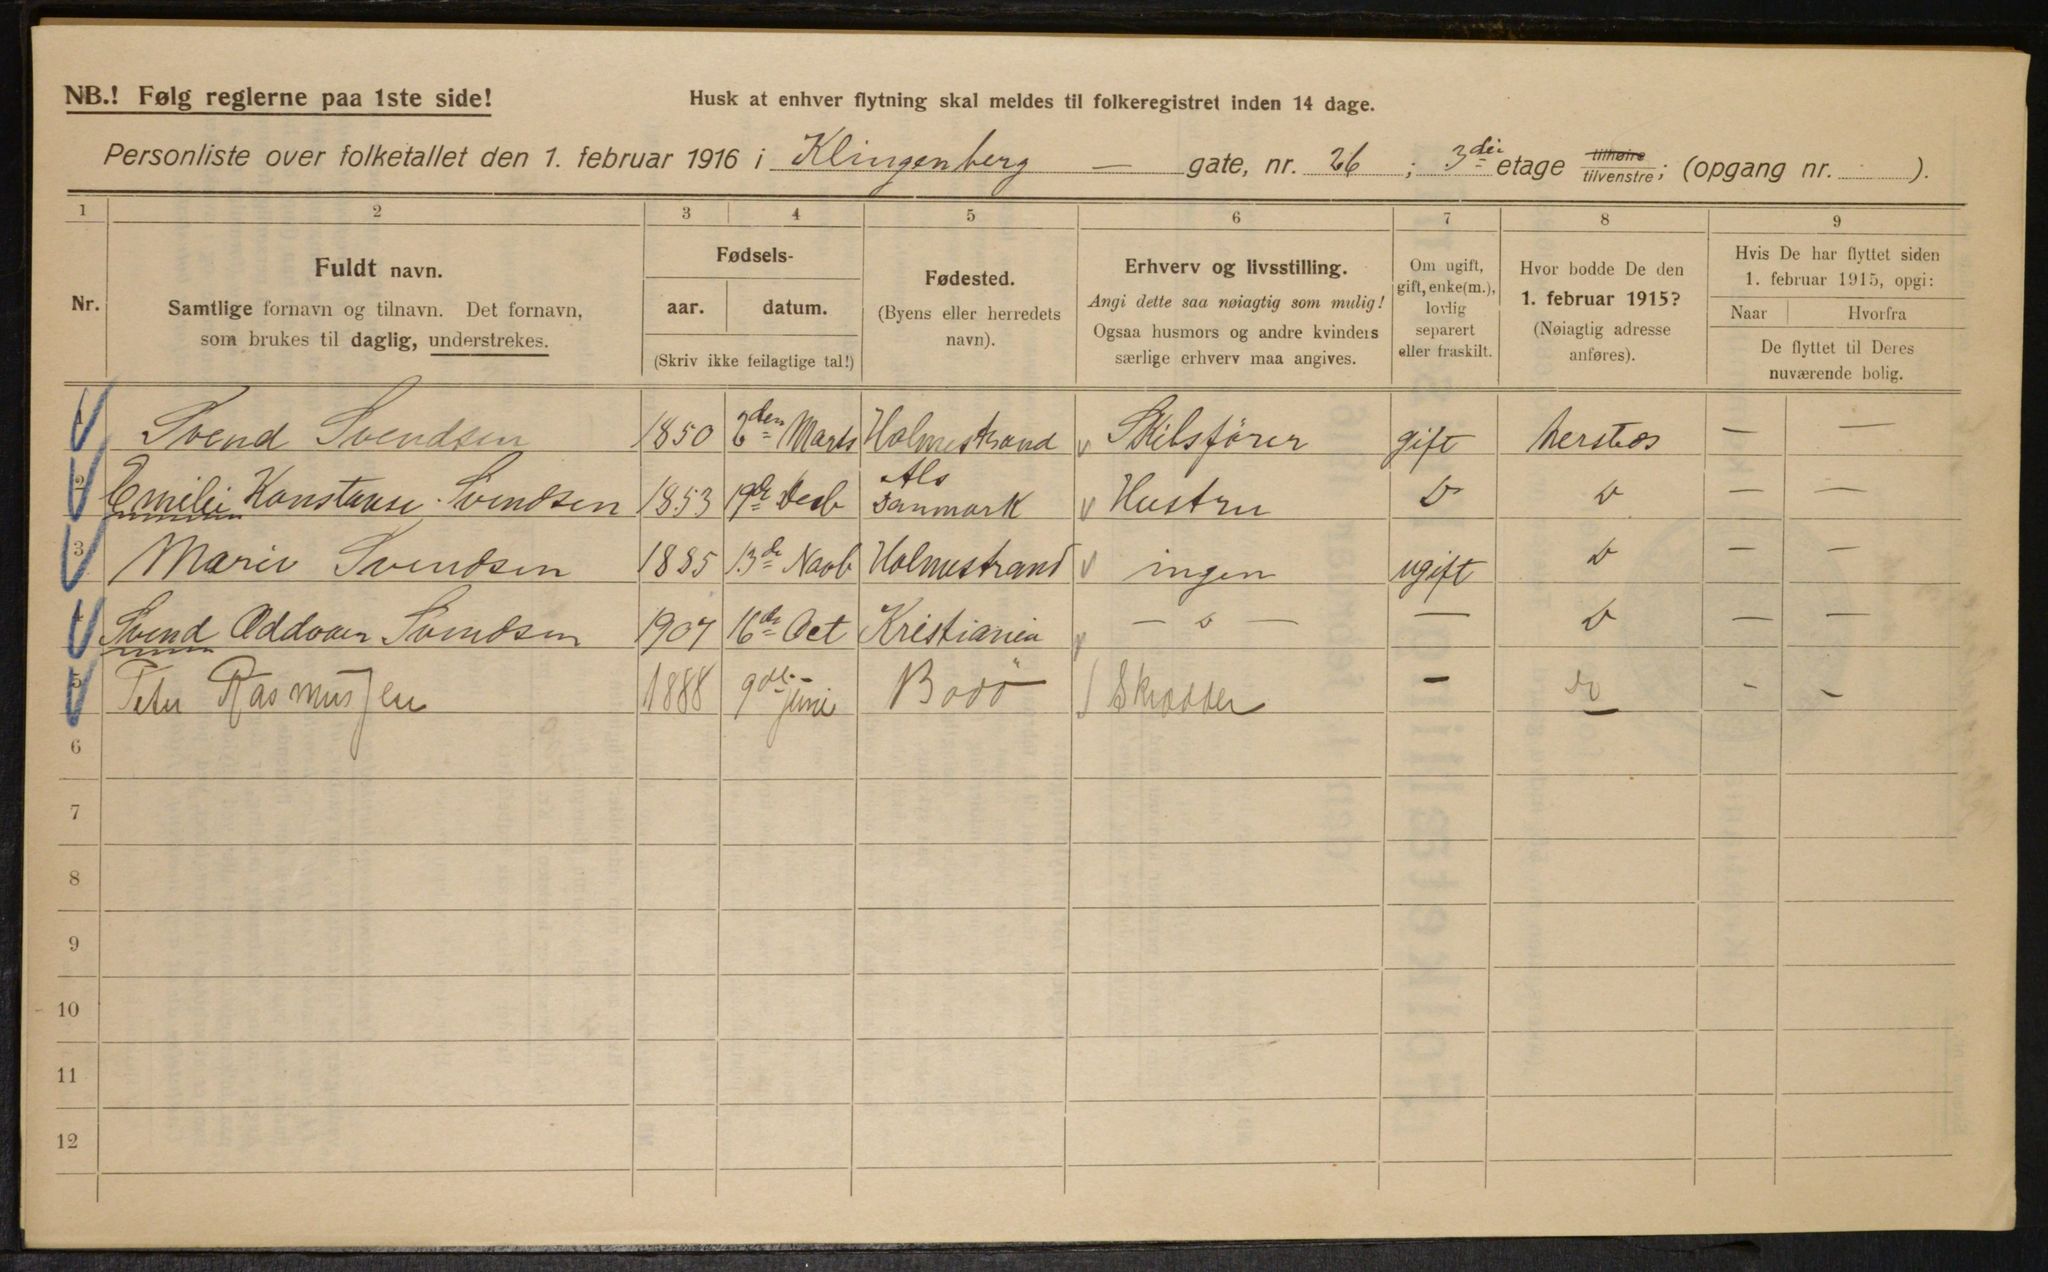 NB.! Følg reglerne paa 1ste side!
Husk at enhver flytning skal meldes til folkeregistret inden 14 dage.
Personliste over folketallet den 1. februar 1916 i Klingenberg — gate, nr. 26 ; 3die etage tilhøire tilvenstre; (opgang nr. ).
1 2 3 4 5 6 7 8 9
Nr.
Fuldt navn.
Samtlige fornavn og tilnavn. Det fornavn,
som brukes til daglig, understrekes.
Fødsels-
aar. datum.
(Skriv ikke feilagtige tal!)
Fødested.
(Byens eller herredets
navn).
Erhverv og livsstilling.
Angi dette saa nøiagtig som mulig!
Ogsaa husmors og andre kvinders
særlige erhverv maa angives.
Om ugift,
gift, enke(m.),
lovlig
separert
eller fraskilt.
Hvor bodde De den
1. februar 1915?
(Nøiagtig adresse
anføres).
Hvis De har flyttet siden
1. februar 1915, opgi:
Naar Hvorfra
De flyttet til Deres
nuværende bolig.
1 Svend Svendsen 1850 2den Marts Holmestrand Skibsfører gift hersteds — —
2 Emilie Konstanse Svendsen 1853 19de Decb Als Danmark Hustru Do Do — —
3 Marie Svendsen 1885 13de Novb Holmestrand ingen ugift Do — —
4 Svend Oddvar Svendsen 1907 16de Oct Kristiania — " — — Do — —
5 Peter Rasmussen 1888 9de juni Bodö Skrædder — do - -
6
7
8
9
10
11
12